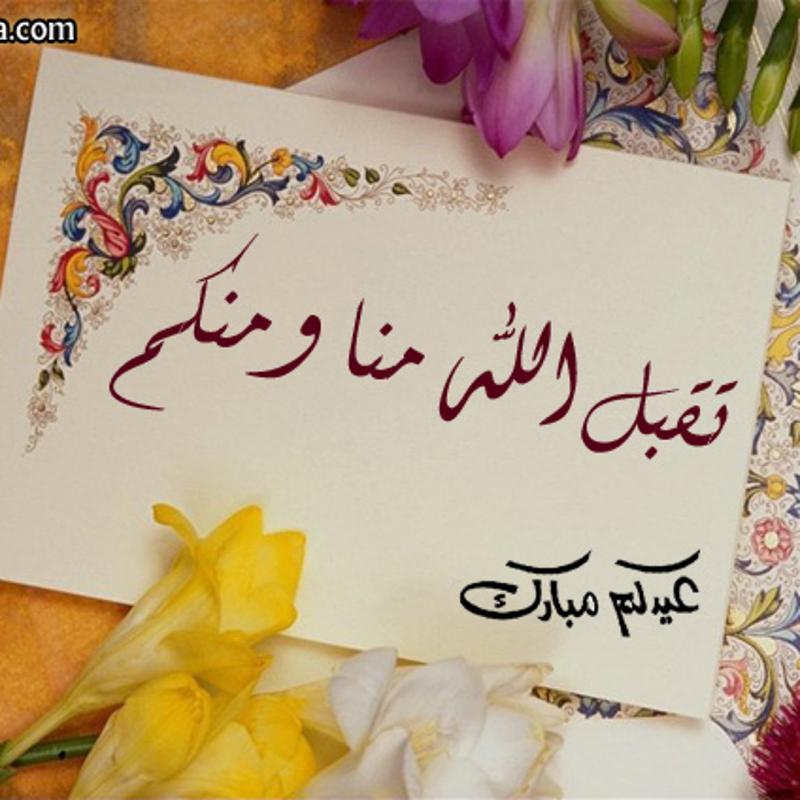 a.com
تقبل الله منا ومنكم
عيدكم مبارك